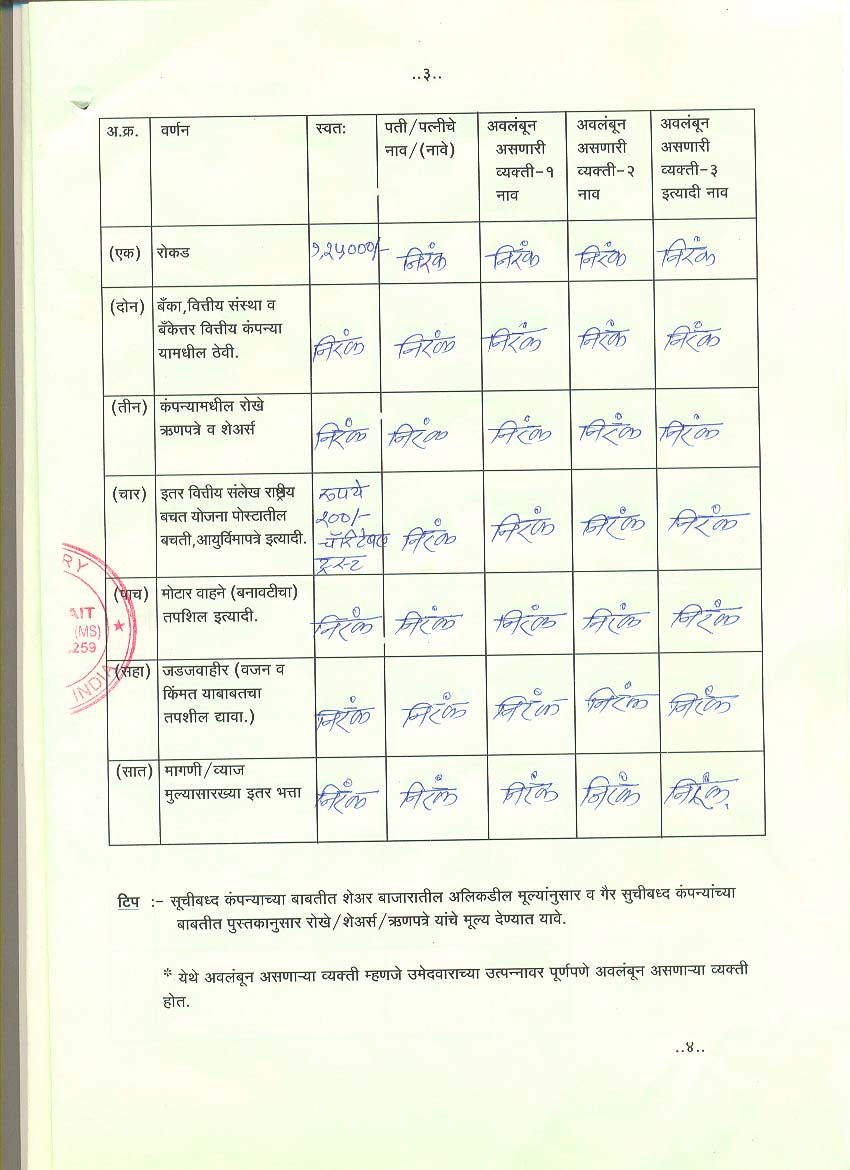 ..३..
अ.क्र. वर्णन स्वत: पती/पत्नीचे नाव/(नावे) अवलंबून असणारी व्यक्ती-१ नाव अवलंबून असणारी व्यक्ती-२ नाव अवलंबून असणारी व्यक्ती-३ इत्यादी नाव
(एक) रोकड १,२५०००/- निरंक निरंक निरंक निरंक
(दोन) बँका,वित्तीय संस्था व
बँकेत्तर वित्तीय कंपन्या
यामधील ठेवी. निरंक निरंक निरंक निरंक निरंक
(तीन) कंपन्यामधील रोखे
ऋणपत्रे व शेअर्स निरंक निरंक निरंक निरंक निरंक
(चार) इतर वित्तीय संलेख राष्ट्रीय रुपये
बचत योजना पोस्टातील २००/-
बचती,आयुर्विमापत्रे इत्यादी. चॅरिटेबल निरंक निरंक निरंक निरंक
ट्रस्ट
(पाच) मोटार वाहने (बनावटीचा)
तपशिल इत्यादी. निरंक निरंक निरंक निरंक निरंक
(सहा) जडजवाहीर (वजन व
किंमत याबाबतचा
तपशील द्यावा.) निरंक निरंक निरंक निरंक निरंक
(सात) मागणी/व्याज
मुल्यासारख्या इतर भत्ता निरंक निरंक निरंक निरंक निरंक
RY
AIT
(MS)
259
INDIA
टिप :- सूचीबध्द कंपन्याच्या बाबतीत शेअर बाजारातील अलिकडील मूल्यांनुसार व गैर सुचीबध्द कंपन्यांच्या
बाबतीत पुस्तकानुसार रोखे/शेअर्स/ऋणपत्रे यांचे मूल्य देण्यात यावे.
* येथे अवलंबून असणाऱ्या व्यक्ती म्हणजे उमेदवाराच्या उत्पन्नावर पूर्णपणे अवलंबून असणाऱ्या व्यक्ती
होत.
..४..